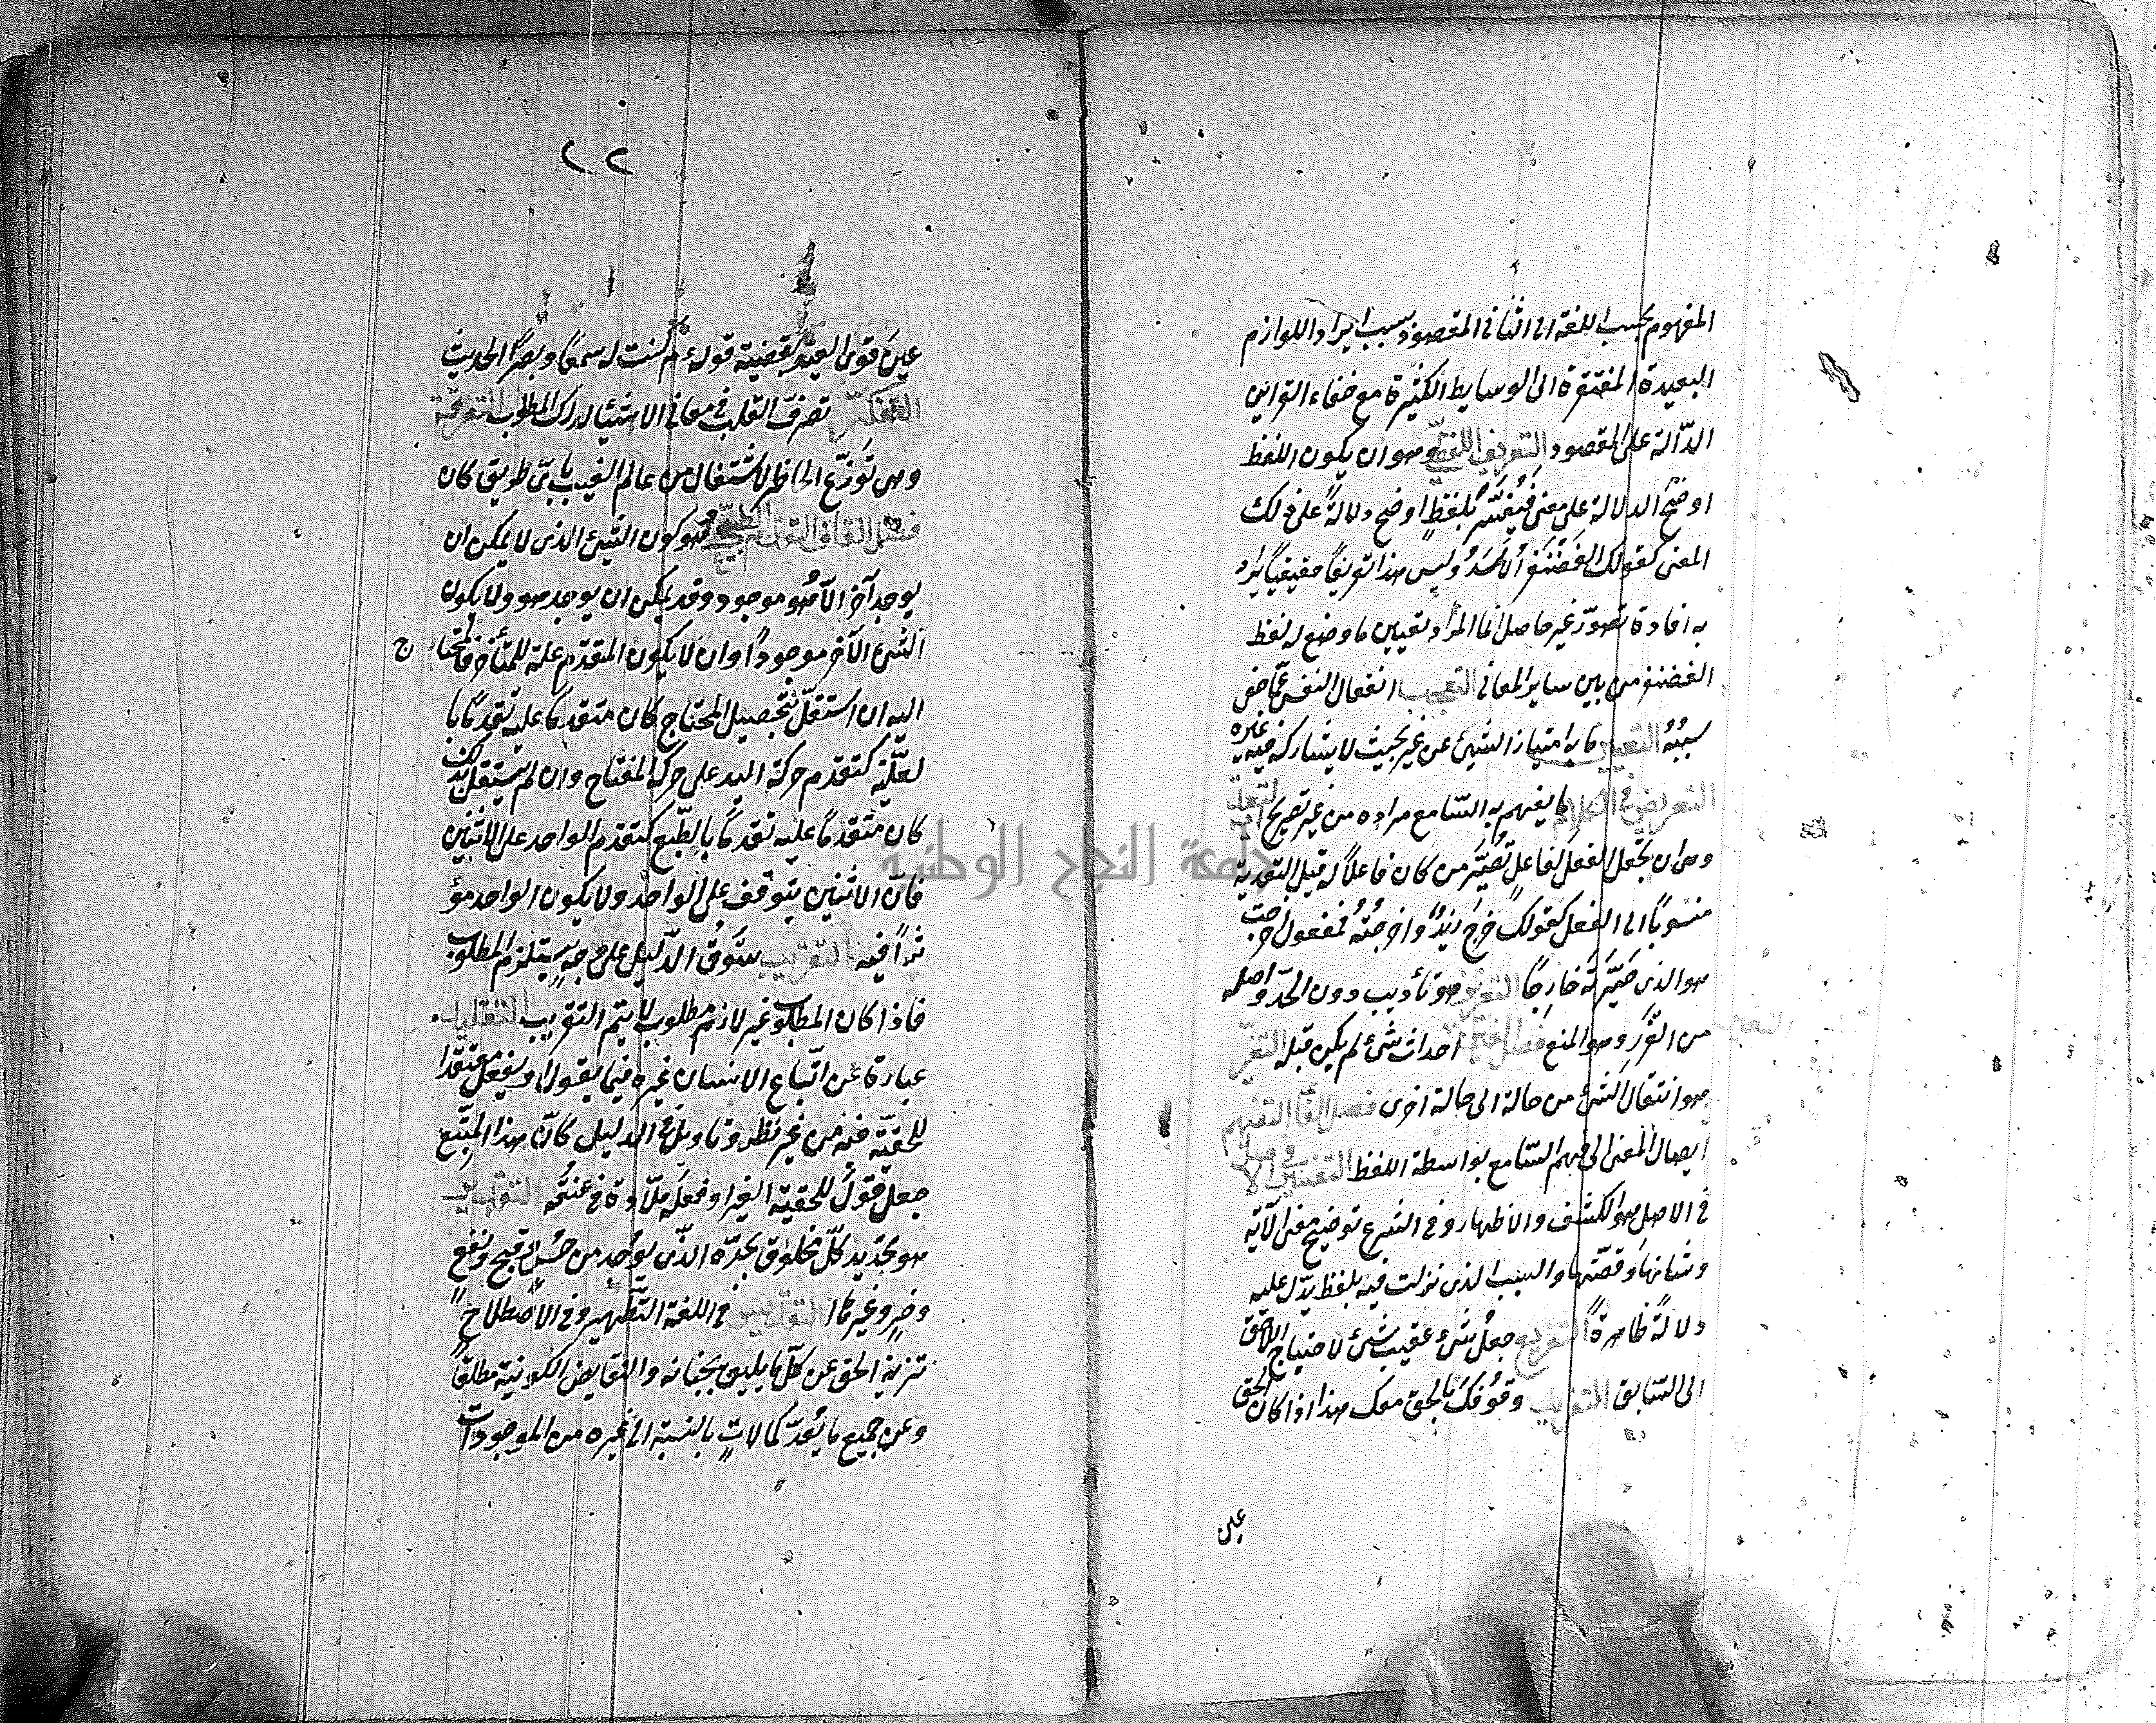 المفهوم بحسب اللغة الى الثانى المقصود بسبب ايراد اللوازم
البعيدة المفتقرة الى الوسايط الكثيرة مع خفاء القراين
الدّالة على المقصود التعريف اللفظي وهو ان يكون اللفظ
اوضح الدلالة على معنى فيفسّر بلفظٍ اوضح دلالةً على ذلك
المعنى كقولك الغضنفر الاسدُ وليس هذا تعريفًا حقيقيًا يراد
به افادة تصوّر غير حاصل انما المراد تعيين ما وضع له لفظ
الغضنفر من بين ساير المعانى التعجب انفعال النفس عمّا خفى
سببُهُ التعيين ما به امتياز الشيئ عن غيره بحيث لا يشاركه فيه غيره
التعريض فى الكلام ما يفهم به السّامع مراده من غير تصريح التعدية
وهى ان تجعل الفعل لفاعل تصيّر من كان فاعلاً له قبل التعدية
منسوبًا الى الفعل كقولك خرج زيدٌ واخرجتُهُ فمفعول اخرجت
هو الذى صيّرتَهُ خارجًا التعزير هو تأديب دون الحدّ واصله
من العَزَر وهو المنع احداث شئ لم يكن قبله التغيّر
هو انتقال الشئ من حالة الى حالة اخرى فصل الفا التفهيم
ايصال المعنى الى فهم السّامع بواسطة اللفظ التفسير
فى الاصل هو الكشف والاظهار وفى الشرع توضيح معنى الآية
وشأنها وقصّتها والسبب الذى نزلت فيه بلفظ يدّل عليه
دلالةً ظاهرةً التفريع جعلُ شئ عقيب شئ لاحتياج اللاحق
الى السّابق وقوفُك بالحق معك هذا اذا كان الحق
عين
٢٢
عين قوى العبد بقضية قوله م كنت له سمعًا وبصرًا الحديث
التفكّر تصرفّ القلب فى معانى الاشيئا لدرك المطلوب التفرقة
وهى توزّع الخاطر للاشتغال من عالم الغيب باىّ طريق كان
فصل القاف التقدّم الطبيعى وهو كون الشيئ الذى لا يمكن ان
يوجد آخر الاّ وهو موجود وقد يمكن ان يوجد هو ولا يكون
الشئ الآخر موجودًا وان لا يكون المتقدّم علة للمتأخر فالمحتا ج
اليه ان استقلّ بتحصيل المحتاج كان متقدمًا عليه تقدمًا با
لعلّيّة كتقدم حركة اليد على حركة المفتاح وان لم يستقل بذلك
كان متقدمًا عليه تقدمًا بالطّبع كتقدّم الواحد على الاثنين
فانّ الاثنين يتوقف على الواحد ولا يكون الواحد مؤ
ثرًا فيه التقريب سَوقُ الدّليل على وجهٍ يستلزم المطلوب
فاذا كان المطلوب غير لازم مطلوب لا يتمّ التقريب التقليد
عبارة عن اتّباع الانسان غيره فيما يقول او يفعل معتقدًا
للحقيّة فيه من غير نظر وتأويل فى الدليل كانّ هذا المتّبع
جعل قولَ للحقية الغير او فعله قلّادة فى عنقه
هو تحديد كلّ مخلوق بحدّه الذى يوجد من حُسنٍ وقبح ونفع
وضرٍ وغيرهما التقديس فى اللغة التّطهير وفى الاصطلاح
تنزيه الحق عن كلّ ما يليق بجنابه والنقايض الكونية مطلقًا
وعن جميع ما يُعدّ كمالاتٍ بالنسبة الى غيره من الموجودات
جامعة النجاح الوطنية